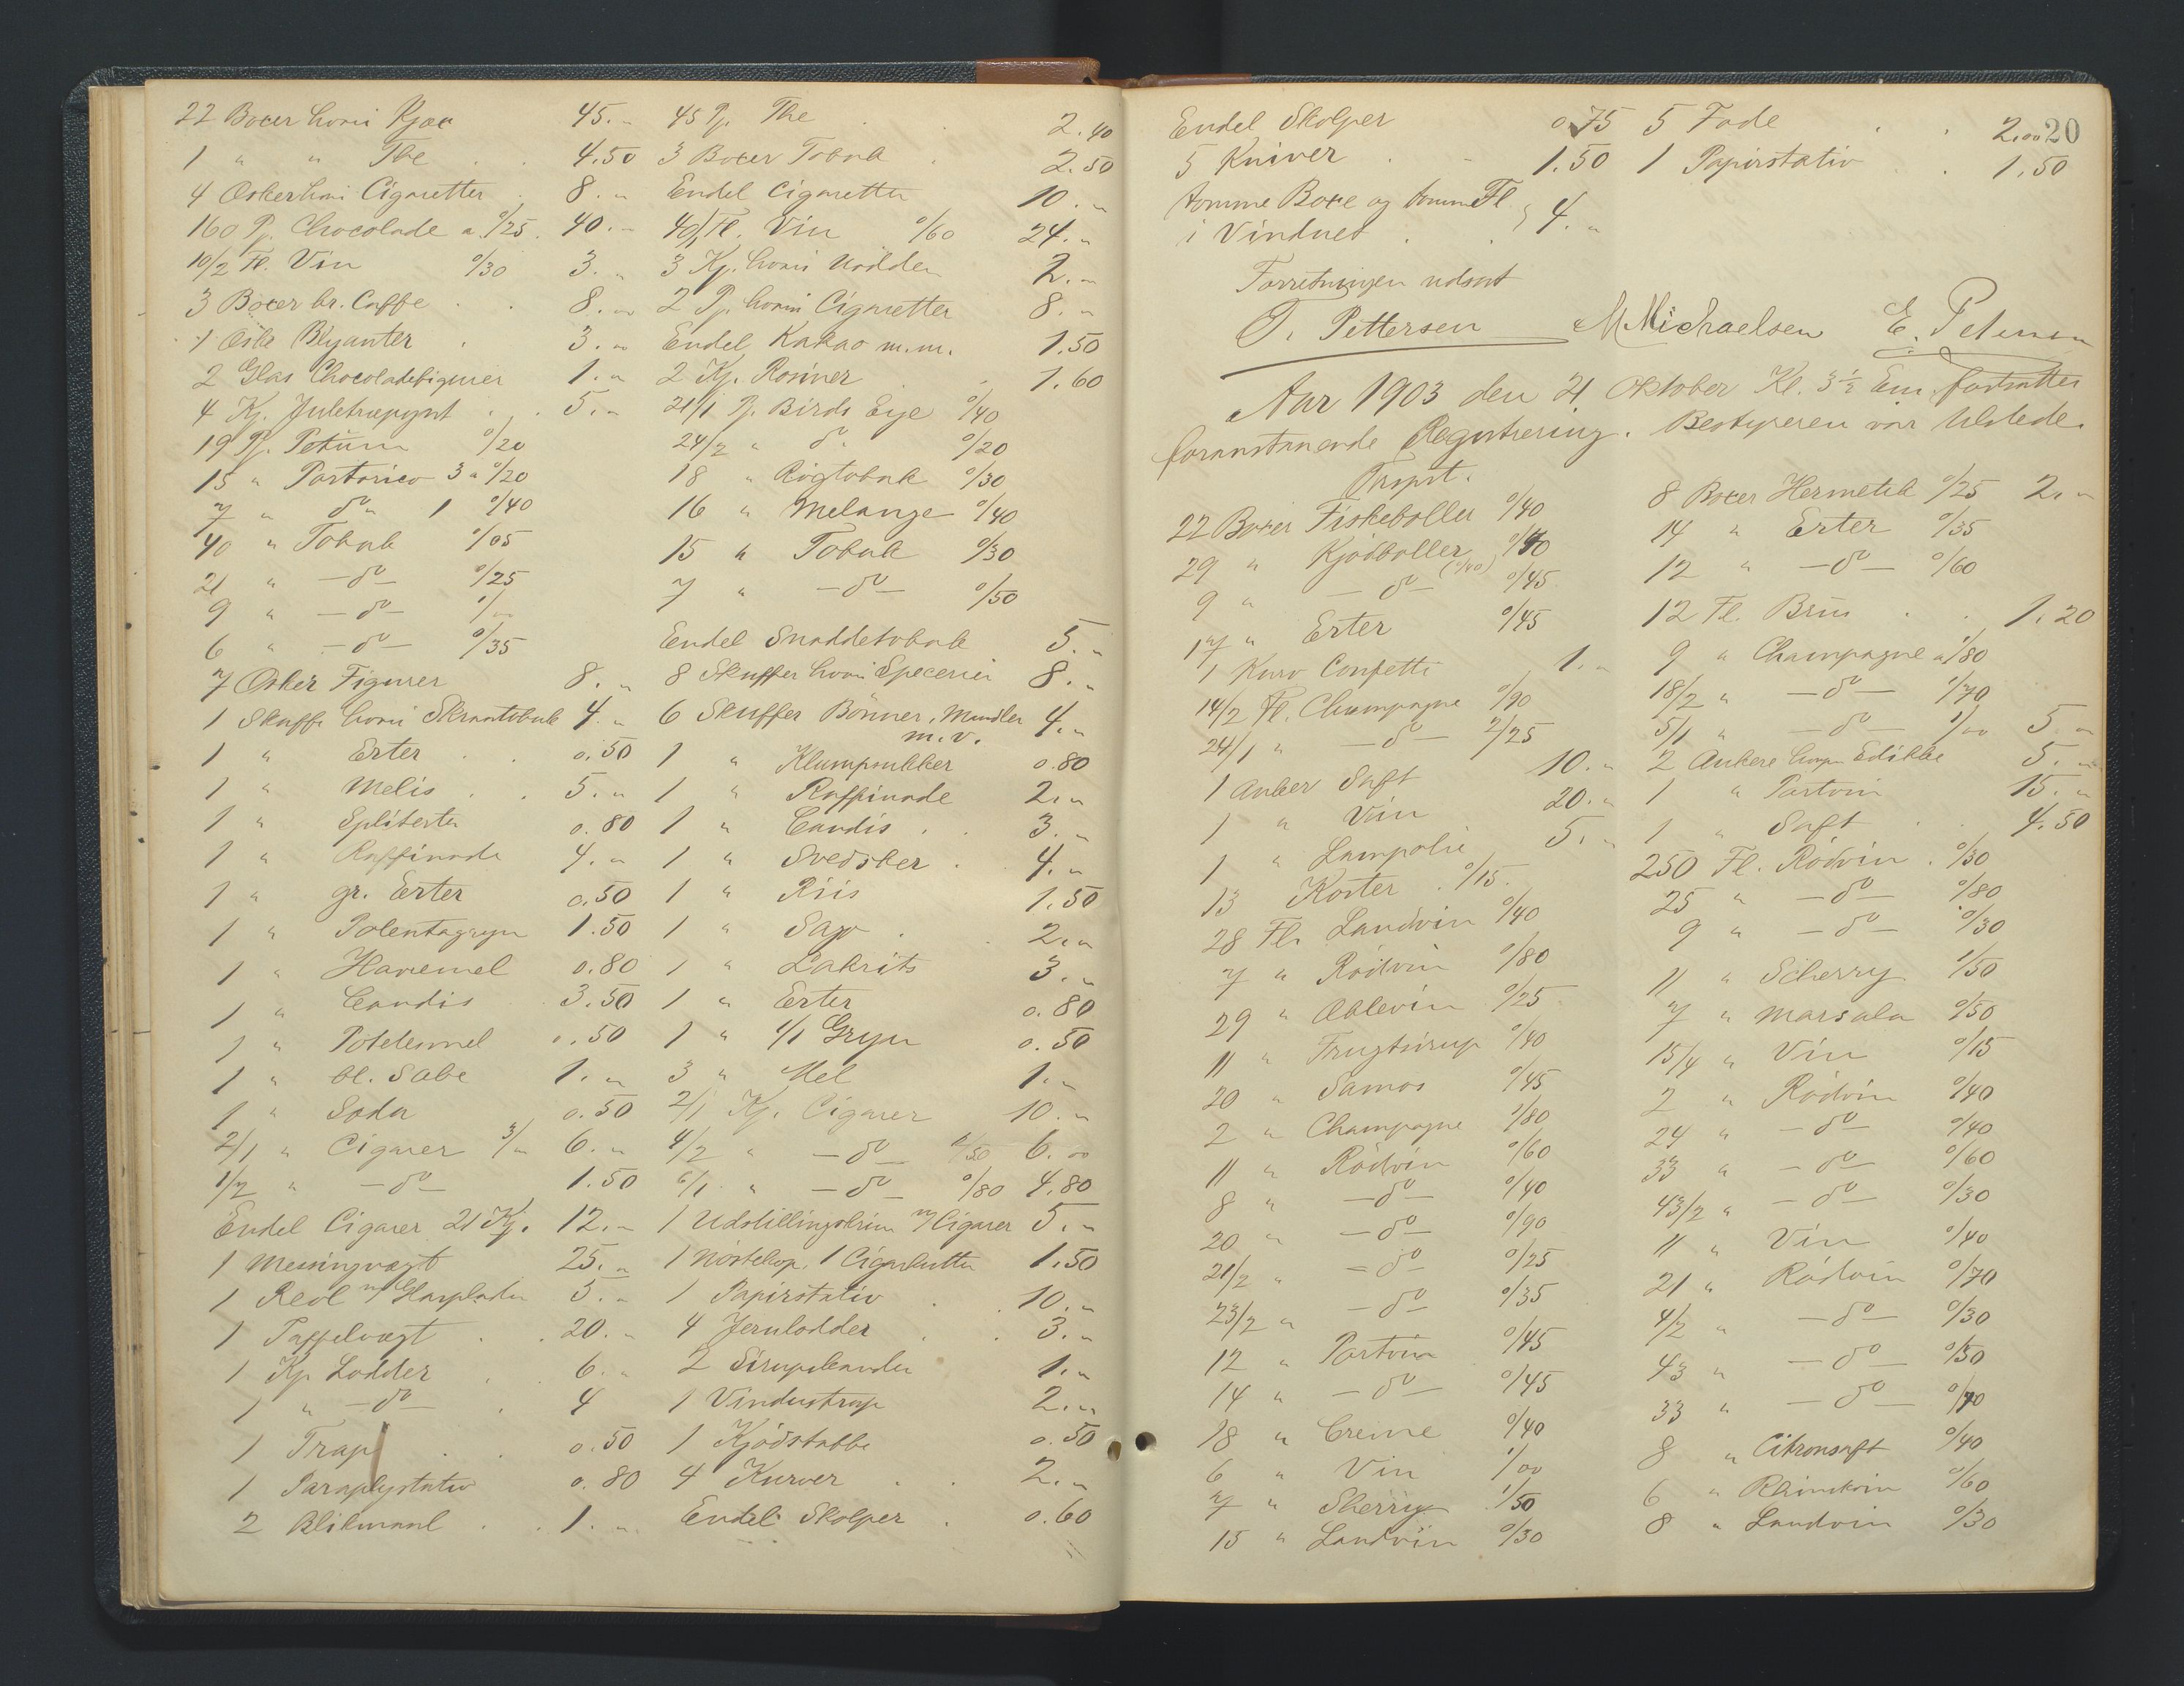 22 Boxer hvori Kjæx 45.„ 45 P. The 2.40
1 " " The 4.50 3 Boxer Tobak 2.50
4 Æsker hvori Cigaretter 8.„ Endel Cigaretter 10.„
160 P. Chocolade a 0/25 40.„ 40/1 Fl. Vin 0/60 24.„
10/2 Fl. Vin 0/30 3.„ 3 Kj. hvori 2.„
3 Boxer br. Caffe 8.„ 2 P. hvori Cigaretter 8.„
1 Æske Blyanter 3.„ Endel Kakao m.m. 1.50
2 Glas Chocoladefigurer 1.„ 2 Kj. Rosiner 1.60
4 Kj. Juletræpynt 5.„ 21/1 P. Birds Eye 0/40
19 P. Petum 0/20 24/2 " do 0/20
15 " Portorico 3 a 0/20 18 " Røgtobak 0/30
7 " do 1 0/40 16 " Melange 0/40
40 " Tobak 0/05 15 " Tobak 0/30
21 " — do — 0/25 7 " — do — 0/50
9 " — do — 1/00
6 " — do — 0/35 Endel Snaddetobak 5.„
7 Æsker Figurer 8.„ 8 Skuffer hvori Specerier 8.„
1 Skuffe hvori Skraatobak 4.„ 6 Skuffer Bönner, Mandler m.v. 4.„
1 " Erter 0.50 1 " Klumpsukker 0.80
1 " Melis 5.„ 1 " Raffinade 2.„
1 " Spliterter 0.80 1 " Candis 3.„
1 " Raffinade 4.„ 1 " Svedsker 4.„
1 " gr. Erter 0.50 1 " Riis 1.50
1 " Polentagryn 1.50 1 " Sago 2.„
1 " Havremel 0.80 1 " Lakrits 3.„
1 " Candis 3.50 1 " Erter 0.80
1 " Potetesmel 0.50 1 " 1/1 Gryn 0.50
1 " bl. Sæbe 1.„ 3 " Mel 1.„
1 " Soda 0.50 2/1 Kj. Cigarer 10.„
2/1 " Cigarer 3/„ 6.„ 4/2 " — do — 1/50 6.00
1/2 " — do — 1.50 6/1 " — do — 0/80 4.80
Endel Cigarer 21 Kj. 12.„ 1 Udstillingskrin m/ Cigarer 5.„
1 Messingvægt 25.„ 1 Nöstekop, 1 Cigarkutter 1.50
1 Reol m/ Glasplader 5.„ 1 Papirstativ 10.„
1 Taffelvægt 20.„ 4 Jernlodder 3.„
1 Kj. Lodder 6.„ 2 Sirupskander 1.„
1 " — do — 4 1 Vindustrap 2.„
1 Trap 0.50 1 Kjödstabbe 0.50
1 Paraplystativ 0.80 4 Kurver 2.„
2 Blikmaal 1.„ Endel Skolper 0.60
20
Endel Skolper 0.75 5 Fade 2.00
5 Kniver 1.50 1 Papirstativ 1.50
tomme Boxe og tomme Fl.
i Vinduet 4.„
Forretningen udsat
T. Pettersen M Michaelsen E. Petersen
Aar 1903 den 21 Oktober Kl. 3½ Em. fortsattes
foranstaaende Registrering. Bestyreren var tilstede.
Transport.
22 Boxer Fiskeboller 0/40 8 Boxer Hermetik 0/25 2.„
29 " Kjödboller 0/40 14 " Erter 0/35
9 " — do — 0/45 12 " — do — 0/60
17 " Erter 0/45 12 Fl. Brus 1.20
1 Kurv Confetti 1.„ 9 " Champagne a 1/80
14/2 Fl. Champagne 0/90 18/2 " — do — 1/70
24/1 " — do — 2/25 5/1 " — do — 1/00 5.„
1 Anker Saft 10.„ 2 Ankere hvori Edikke 5.„
1 " Vin 20.„ 1 " Portvin 15.„
1 " Lampolie 5.„ 1 " Saft 4.50
13 Koster 0/15 250 Fl. Rödvin 0/30
28 Fl. Landvin 0/40 25 " — do — 0/80
7 " Rödvin 0/80 9 " — do — 0/30
29 " Æblevin 0/25 11 " Scherry 1/50
11 " Frugtsirup 0/40 7 " Marsala 0/50
20 " Samos 0/45 15/4 " Vin 0/15
2 " Champagne 1/80 2 " Rödvin 0/40
11 " Rödvin 0/60 24 " — do — 0/40
8 " — do — 0/40 33 " — do — 0/60
20 " — do — 0/90 43/2 " — do — 0/30
21/2 " — do — 0/25 11 " Vin 0/40
23/2 " — do — 0/35 21 " Rödvin 0/70
12 " Portvin 0/45 4/2 " — do — 0/30
14 " — do — 0/45 43 " — do — 0/50
18 " Creme 0/40 33 " — do — 0/70
6 " Vin 1/00 8 " Citronsaft 0/40
7 " Sherry 1/50 6 " Rhinskvin 0/60
15 " Landvin 0/30 8 " Landvin 0/30